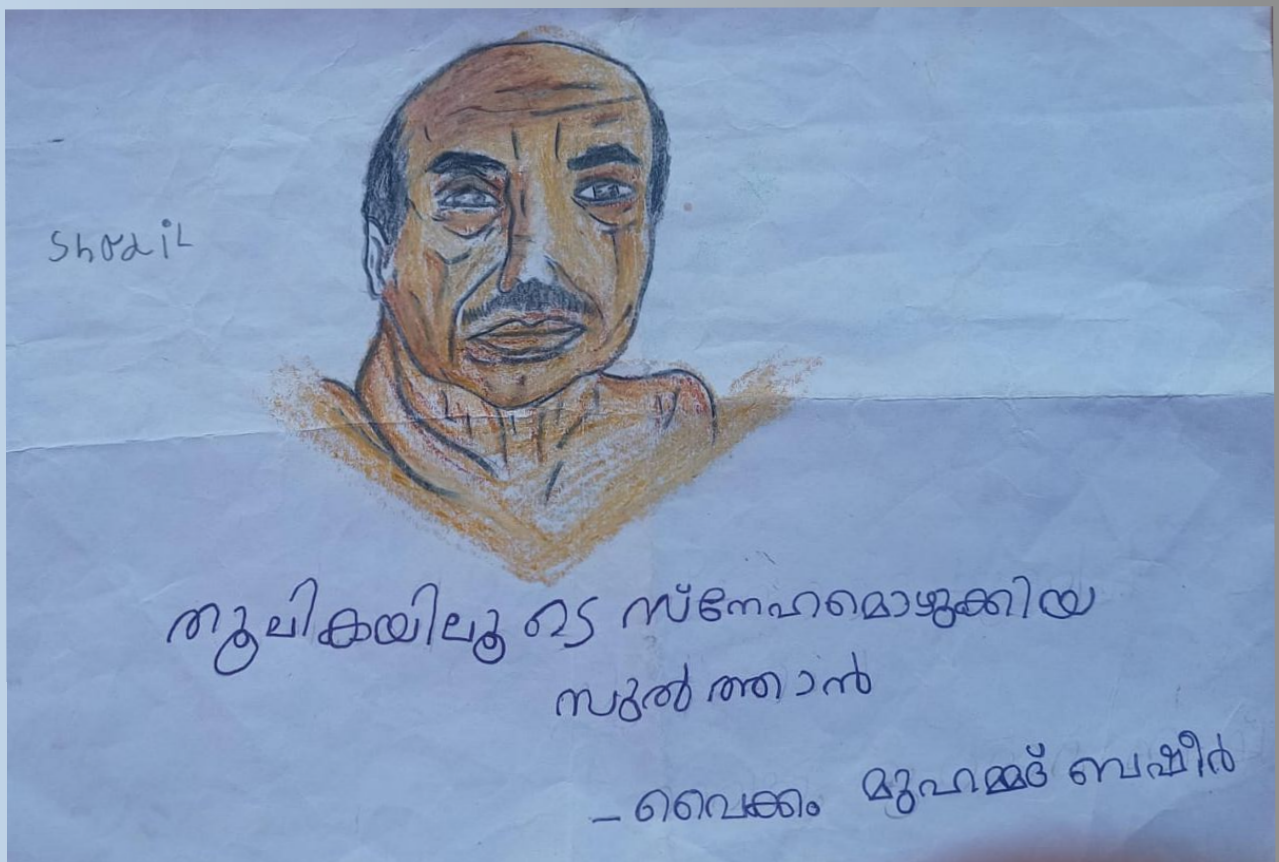 Shodil
തൂലികയിലൂടെ സ്നേഹമൊഴുക്കിയ
സുൽത്താൻ
- വൈക്കം മുഹമ്മദ് ബഷീർ